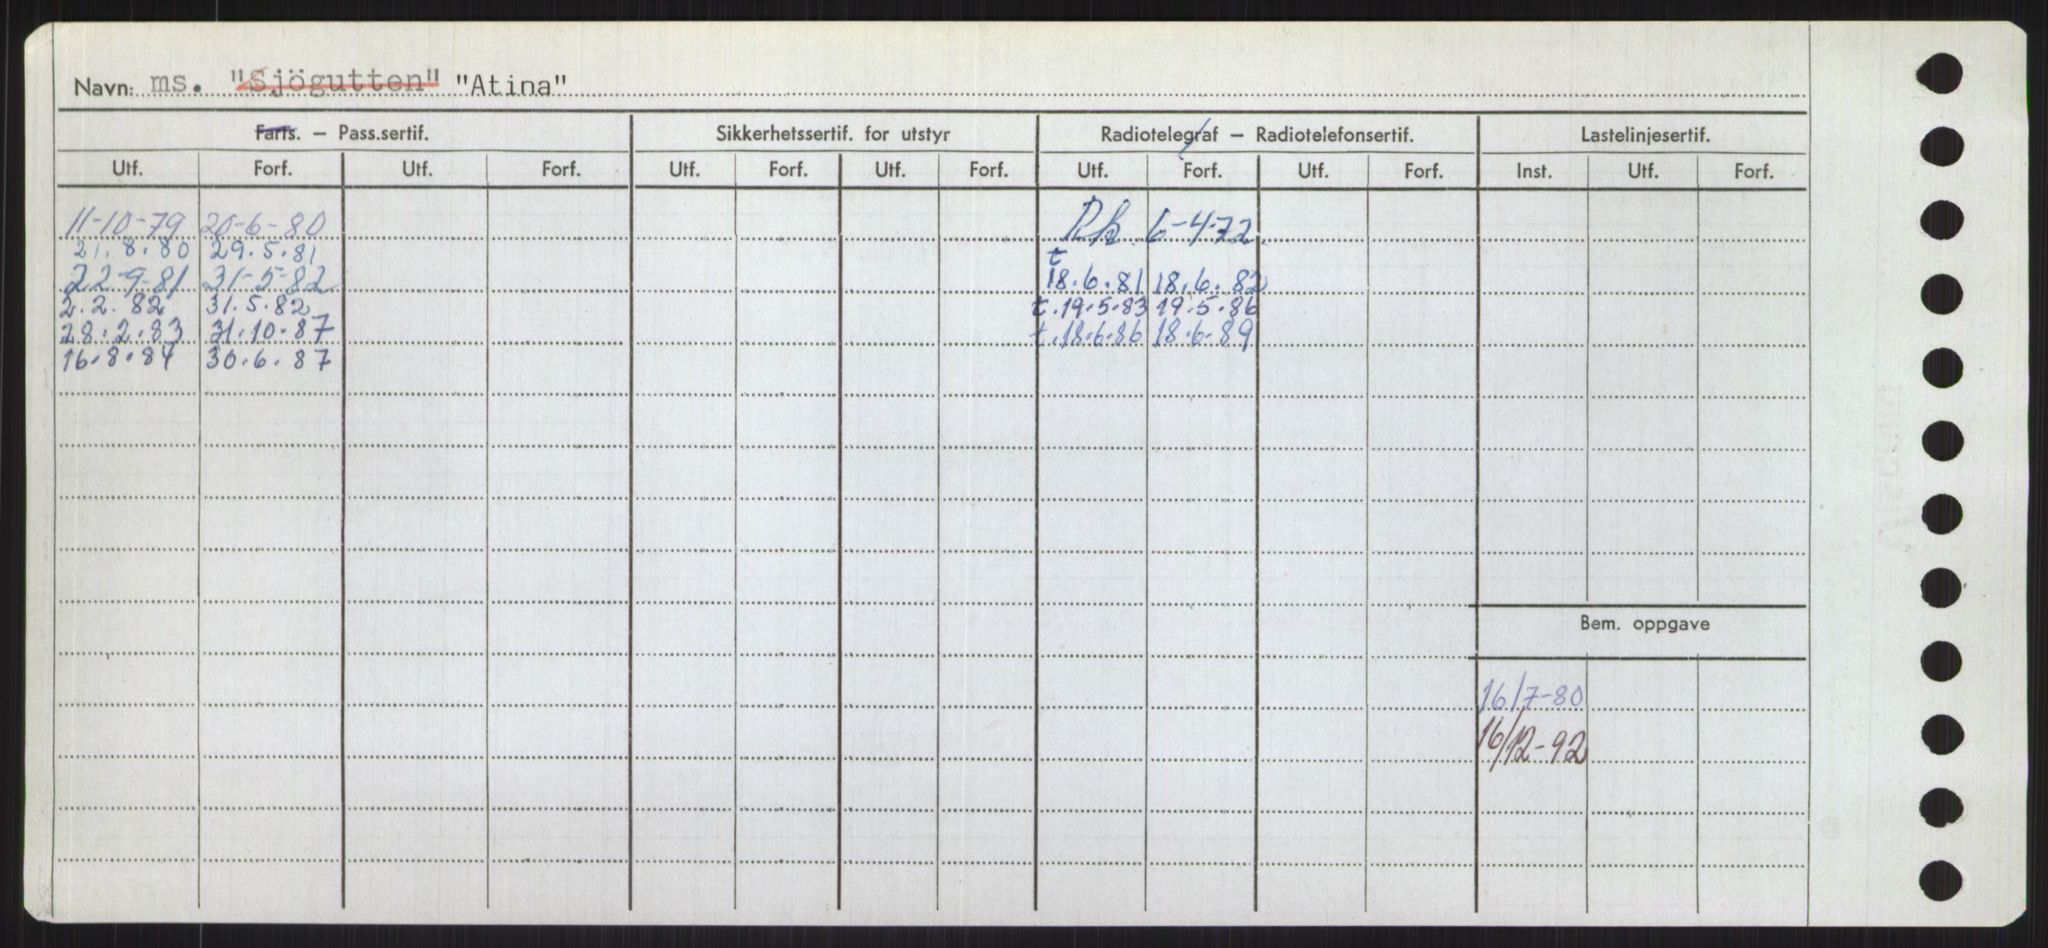 Navn: ms. "Sjögutten" "Atina"
Farts. – Pass.sertif. Sikkerhetssertif. for utstyr Radiotelegraf – Radiotelefonsertif. Lastelinjesertif.
Utf. Forf. Utf. Forf. Utf. Forf. Utf. Forf. Utf. Forf. Utf. Forf. Inst. Utf. Forf.
11-10-79 20-6-80 6-4-72
21.8.80 29.5.81 t
22-9-81 31-5-82 18.6.81 18.6.82
2.2.82 31.5.82 t.19.5.83 19.5.86
28.2.83 31.10.87 t.18.6.86 18.6.89
16.8.84 30.6.87
Bem. oppgave
16/7-80
16/12-92